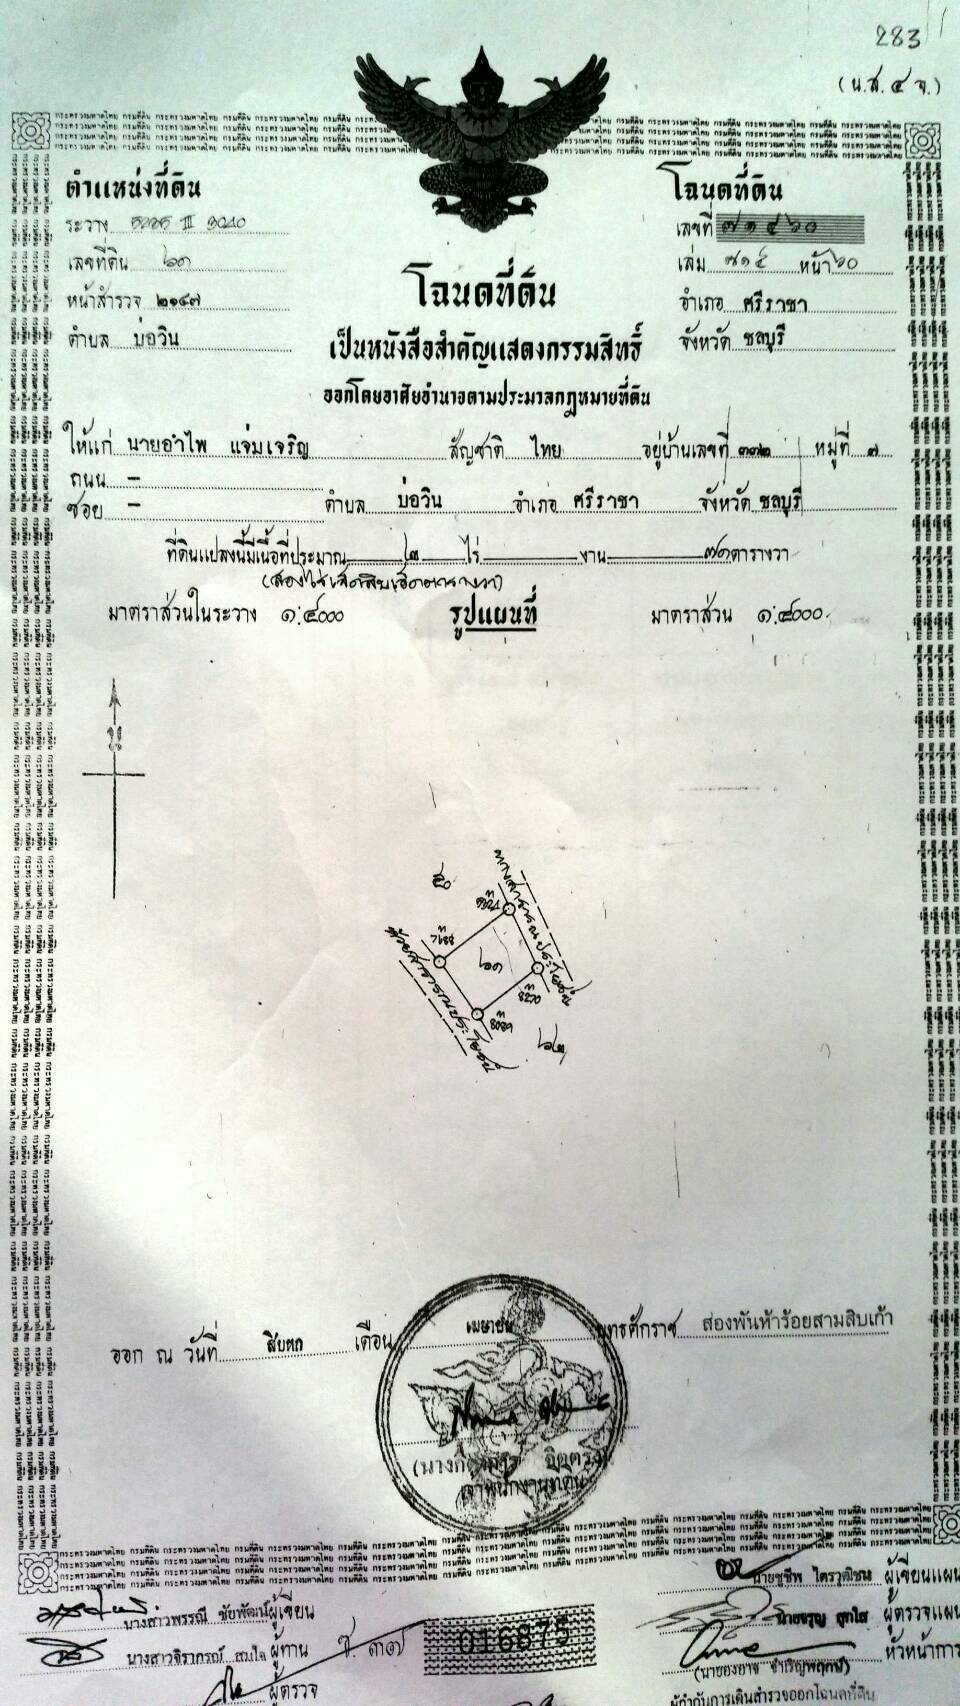 283
(น.ส.๔ จ.)
ตำแหน่งที่ดิน
ระวาง
เลขที่ดิน ๖๓
หน้าสำรวจ ๒๑๔๗
ตำบล บ่อวิน
โฉนดที่ดิน
เลขที่ ๗๑๔๖๐
เล่ม ๗๑๕ หน้า ๖๐
อำเภอ ศรีราชา
จังหวัด ชลบุรี
โฉนดที่ดิน
เป็นหนังสือสำคัญแสดงกรรมสิทธิ์
ออกโดยอาศัยอำนาจตามประมวลกฎหมายที่ดิน
ให้แก่ นายอำไพ แจ่มเจริญ สัญชาติ ไทย อยู่บ้านเลขที่ ๓๓๒ หมู่ที่ ๗
ถนน –
ซอย – ตำบล บ่อวิน อำเภอ ศรีราชา จังหวัด ชลบุรี
ที่ดินแปลงนี้มีเนื้อที่ประมาณ ๒ ไร่ งาน ๗๑ ตารางวา
(สองไร่เจ็ดสิบเอ็ดตารางวา)
มาตราส่วนในระวาง ๑:๔๐๐๐ รูปแผนที่ มาตราส่วน ๑:๔๐๐๐
น
ทางสาธารณประโยชน์
ห้วยสาธารณประโยชน์
๖๓
๖๒
ออก ณ วันที่ สิบหก เดือน เมษายน พุทธศักราช สองพันห้าร้อยสามสิบเก้า
เจ้าพนักงานที่ดิน
นางสาวพรรณี ชัยพัฒน์ ผู้เขียน
นางสาวจิราภรณ์ สมใจ ผู้ทาน
ผู้ตรวจ
ช. ๓๗
016875
นายชูชีพ ไตรวุฒิชน ผู้เขียนแผน
นายจรูญ สุกใส ผู้ตรวจแผน
หัวหน้าการ
(นายองอาจ จำเริญพฤกษ์)
ผู้กำกับการเดินสำรวจออกโฉนดที่ดิน